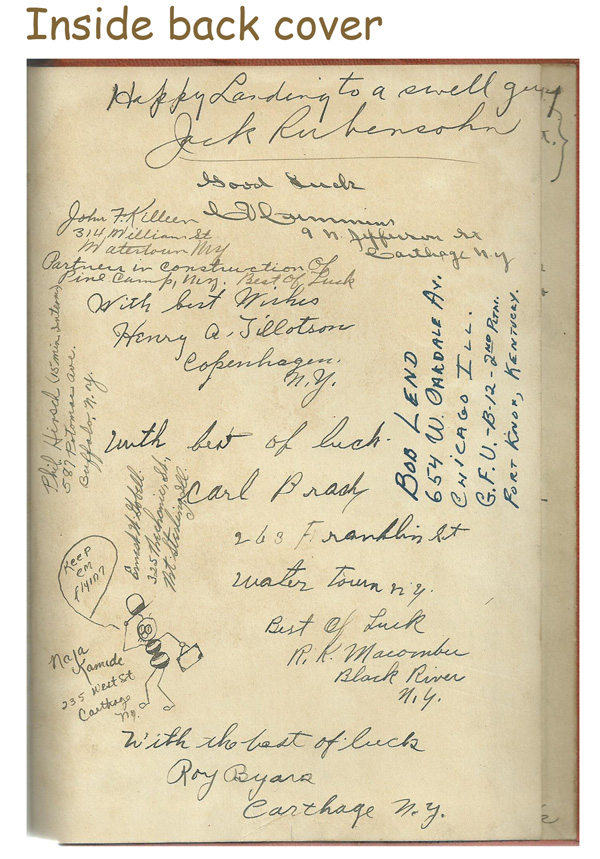 Inside back cover
Happy Landing to a swell guy
Jack Rubensohn
Good Luck
9 N. Jefferson St
Carthage N.Y.
John F. Killeen
314 William St
Watertown NY
Partner in construction Of
Pine Camp, N.Y. Best Of Luck
With best Wishes
Henry A. Tillotson
Copenhagen.
N.Y.
Phil Hirsch (15 min.
587 Potomac ave.
Buffalo, N.Y.
BOB LEND
654 W. OAKDALE AV.
CHICAGO ILL.
G.F.U.-B-12-2ND PLTN.
FORT KNOX, KENTUCKY.
With best of luck.
Carl Brady
263 Franklin St
Water town N.Y.
325 Mechanic St,
Mt Sterling, Ill.
KEEP
EM
FLYIN?
Naja
Kamide
235 West St
Carthage
NY.
Best Of Luck
R. K. Macomber
Black River
N.Y.
With the best of luck
Roy Byars
Carthage N.Y.